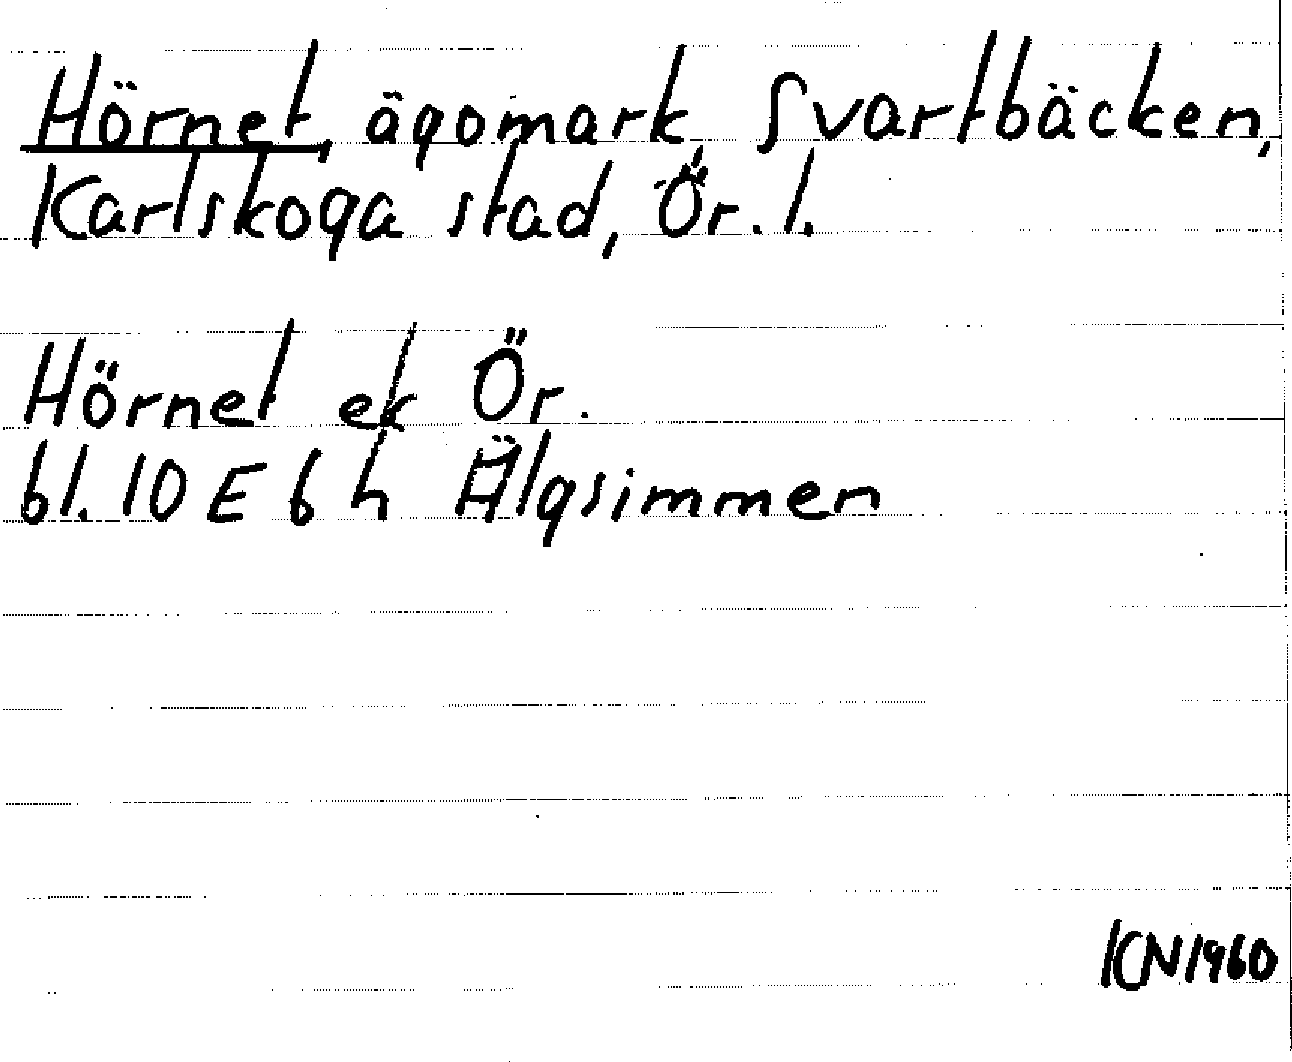 Hörnet, ägomark, Svartbäcken,
Karlskoga stad, Ör. l.
Hörnet ek Ör.
bl. 10 E 6 h Älgsimmen
KN 1960